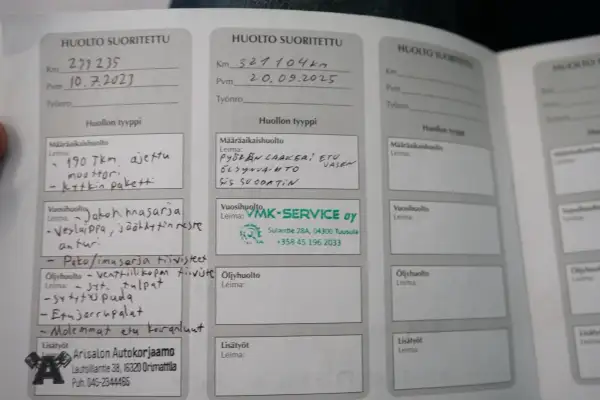 HUOLTO SUORITETTU
Km 299235
Pvm 10.7.2023
Työnro
Huollon tyyppi
Määräaikaishuolto
Leima:
- 190 Tkm. ajettu
moottori.
- kytkin paketti
Vuosihuolto
Leima: - Jakohihnasarja
- Vesipumppu, jäähdytinneste
anturi
- Pako/imusarja tiivisteet
Öljyhuolto - venttiilikopan tiiviste
Leima: - syt. tulpat
- sytytyspuola
- Etujarrupalat
- Molemmat etu koiranluut
Lisätyöt
Leima:
Arisalon Autokorjaamo
Lautsillantie 38, 16320 Orimattila
Puh. 045-2344455
HUOLTO SUORITETTU
Km 321104km
Pvm 20.09.2025
Työnro
Huollon tyyppi
Määräaikaishuolto
Leima:
PYÖRÄN LAAKERI ETU
VASEN
ÖLJYNVAIHTO
SIS SUODATIN
Vuosihuolto
Leima: VMK-SERVICE oy
Sulantie 28A, 04300 Tuusula
+358 45 196 2033
Öljyhuolto
Leima:
Lisätyöt
Leima:
HUOLTO SUORITETTU
Km
Pvm
Työnro
Huollon tyyppi
Määräaikaishuolto
Leima:
Vuosihuolto
Leima:
Öljyhuolto
Leima:
Lisätyöt
Leima: